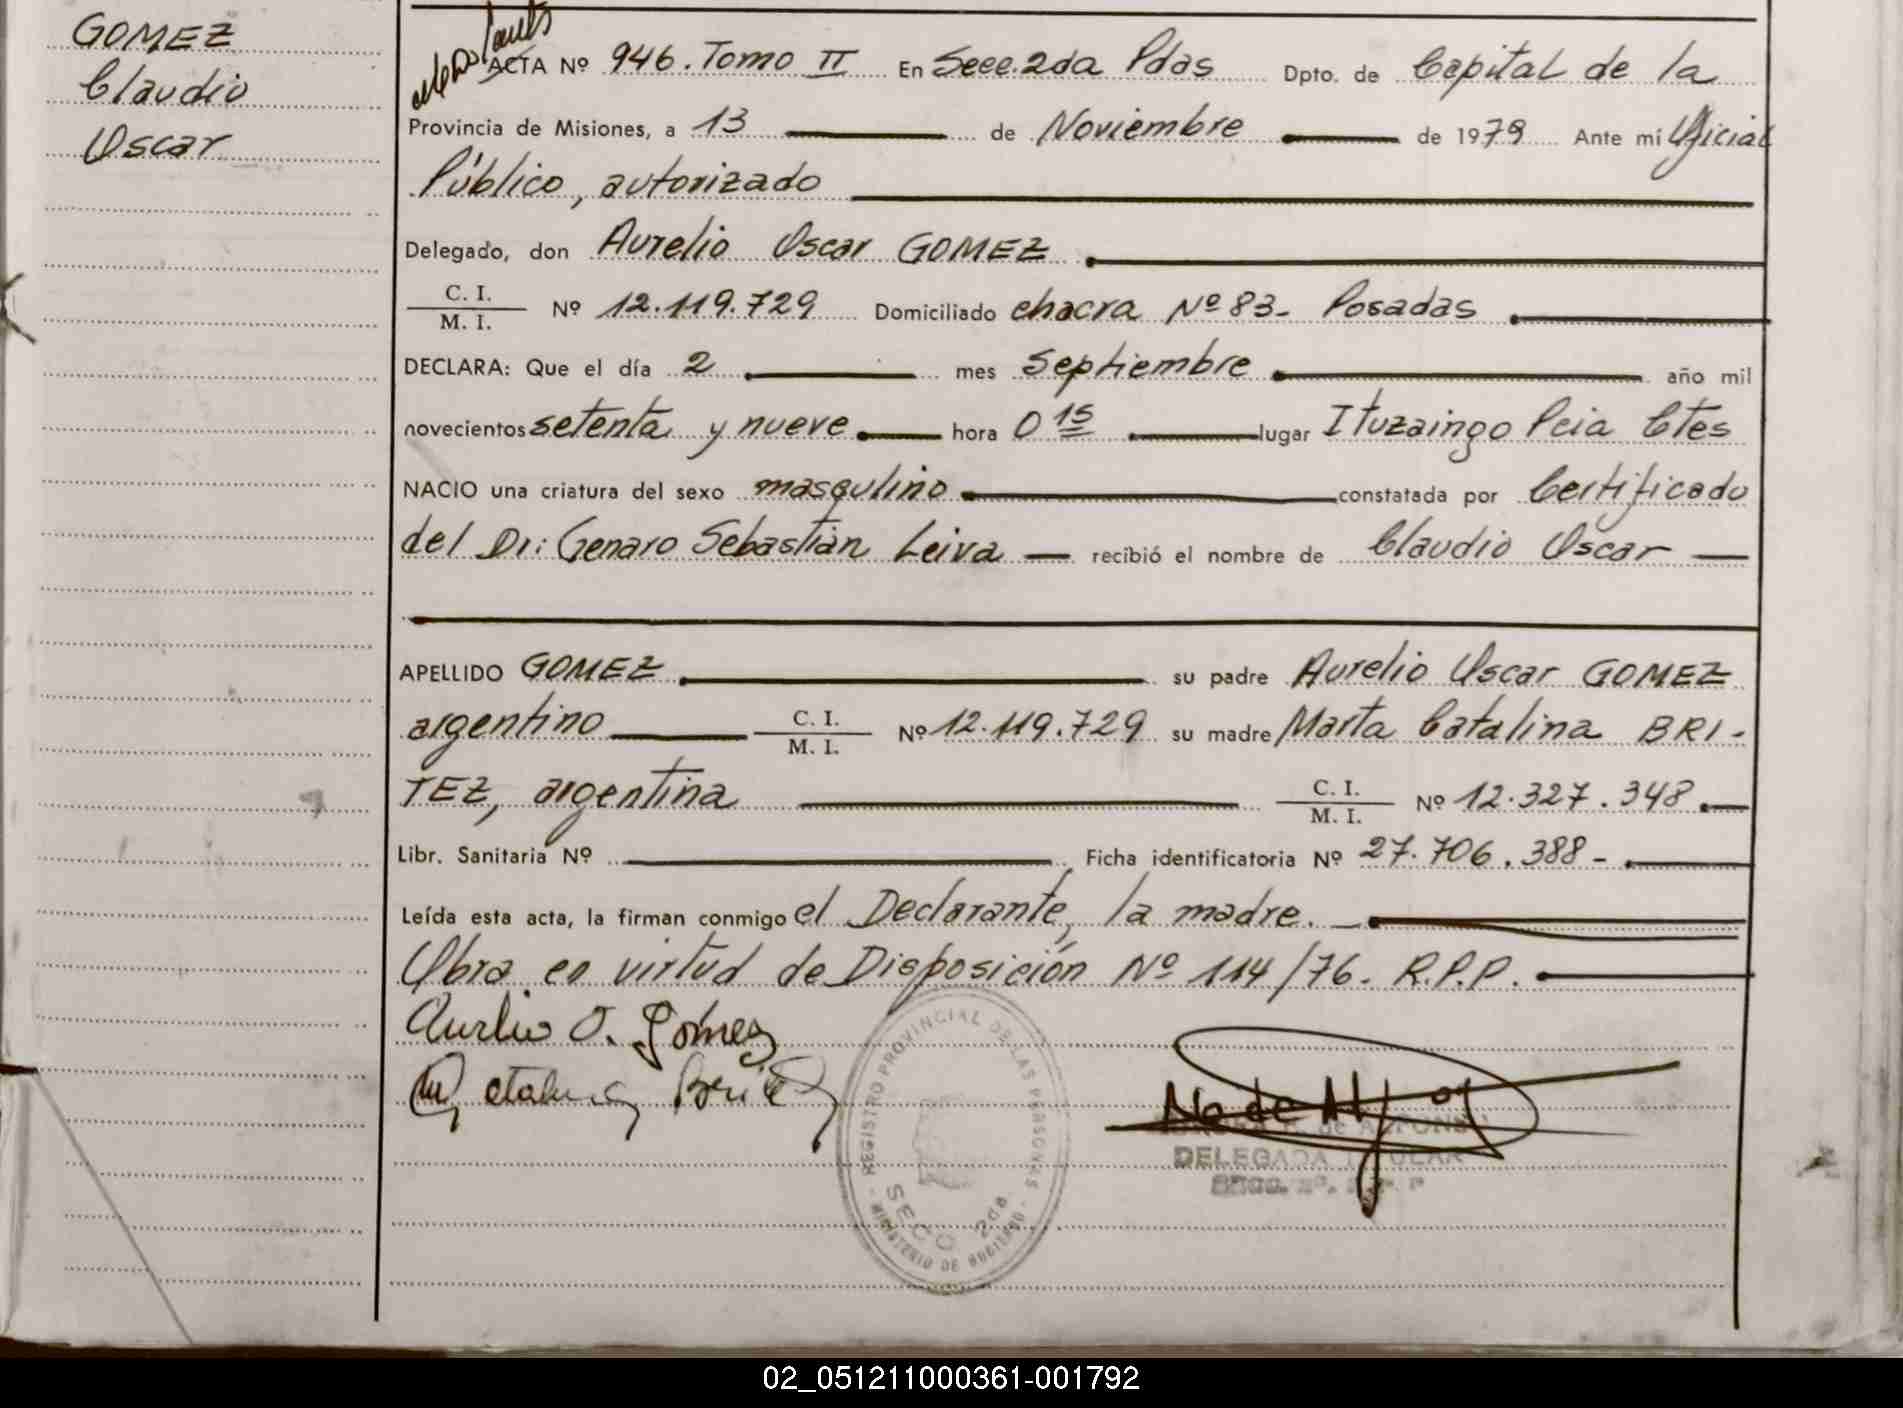 GOMEZ
Claudio
Oscar
ACTA Nº 946. Tomo II En Secc. 2da Pdas Dpto. de Capital de la
Provincia de Misiones, a 13 de Noviembre de 1979 Ante mí Oficial
Público, autorizado
Delegado, don Aurelio Oscar GOMEZ
C. I.
M. I. Nº 12.119.729 Domiciliado chacra Nº 83- Posadas
DECLARA: Que el día 2 mes Septiembre año mil
novecientos setenta y nueve hora 0 15 lugar Ituzaingo Pcia Ctes
NACIO una criatura del sexo masculino constatada por Certificado
del Dr: Genaro Sebastián Leiva — recibió el nombre de Claudio Oscar —
APELLIDO GOMEZ su padre Aurelio Oscar GOMEZ
argentino C. I.
M. I. Nº 12.119.729 su madre Marta Catalina BRI-
TEZ, argentina C. I.
M. I. Nº 12.327.348
Libr. Sanitaria Nº Ficha identificatoria Nº 27.706.388-
Leída esta acta, la firman conmigo el Declarante, la madre.
Obra en virtud de Disposición Nº 114/76. R.P.P.
Aurelio O. Gomez
REGISTRO PROVINCIAL DE LAS PERSONAS
MINISTERIO DE GOBIERNO
SECC 2da
de ALFONSO
DELEGADA TITULAR
02_051211000361-001792